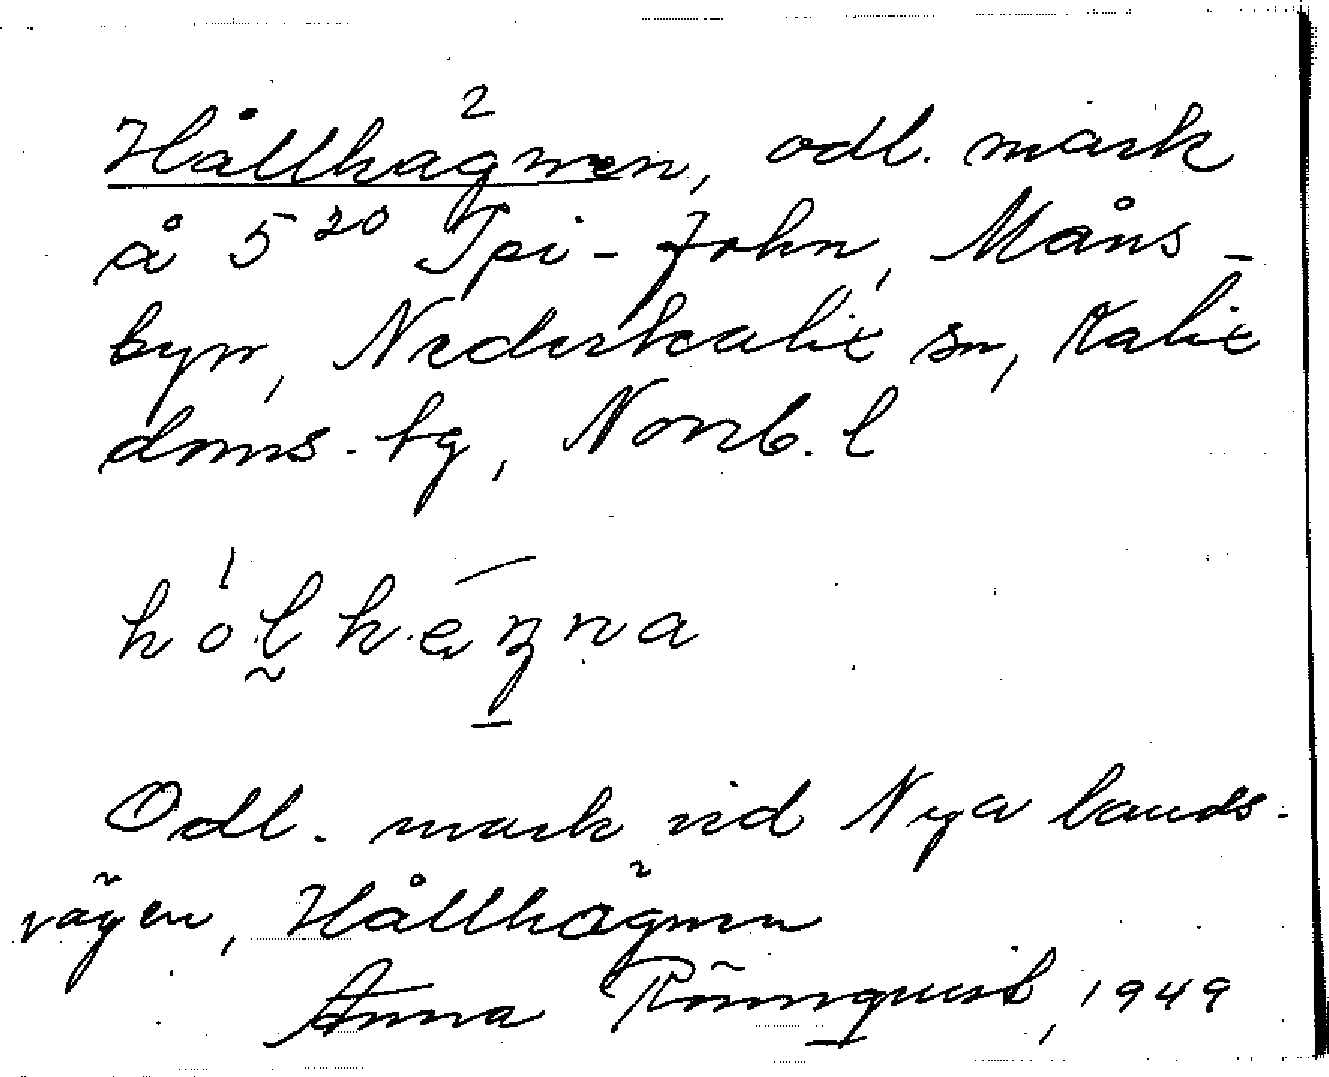 Hållhägnen, odl. mark
å 5²⁰ Spi-John, Måns-
byn, Nederkalix sn, Kalix
doms.-tg, Norrb. l
Odl. mark vid Nya lands-
vägen, Hållhägnen
Anna Rönnquist, 1949